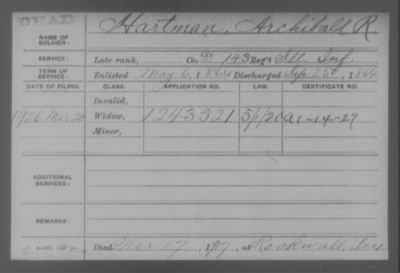 DEAD
NAME OF SOLDIER: Hartman, Archibald R
SERVICE: Late rank, Co. D, 143 Reg't Ill. Inf.
TERM OF SERVICE: Enlisted May 6, 1864 Discharged Sep. 26, 1864
DATE OF FILING. CLASS. APPLICATION NO. LAW. CERTIFICATE NO.
Invalid,
1926 Mar 20 Widow, 1243521 A1-14-27
Minor,
ADDITIONAL SERVICES:
REMARKS:
Died Mar 17, 1917, at Rockwall, Tex